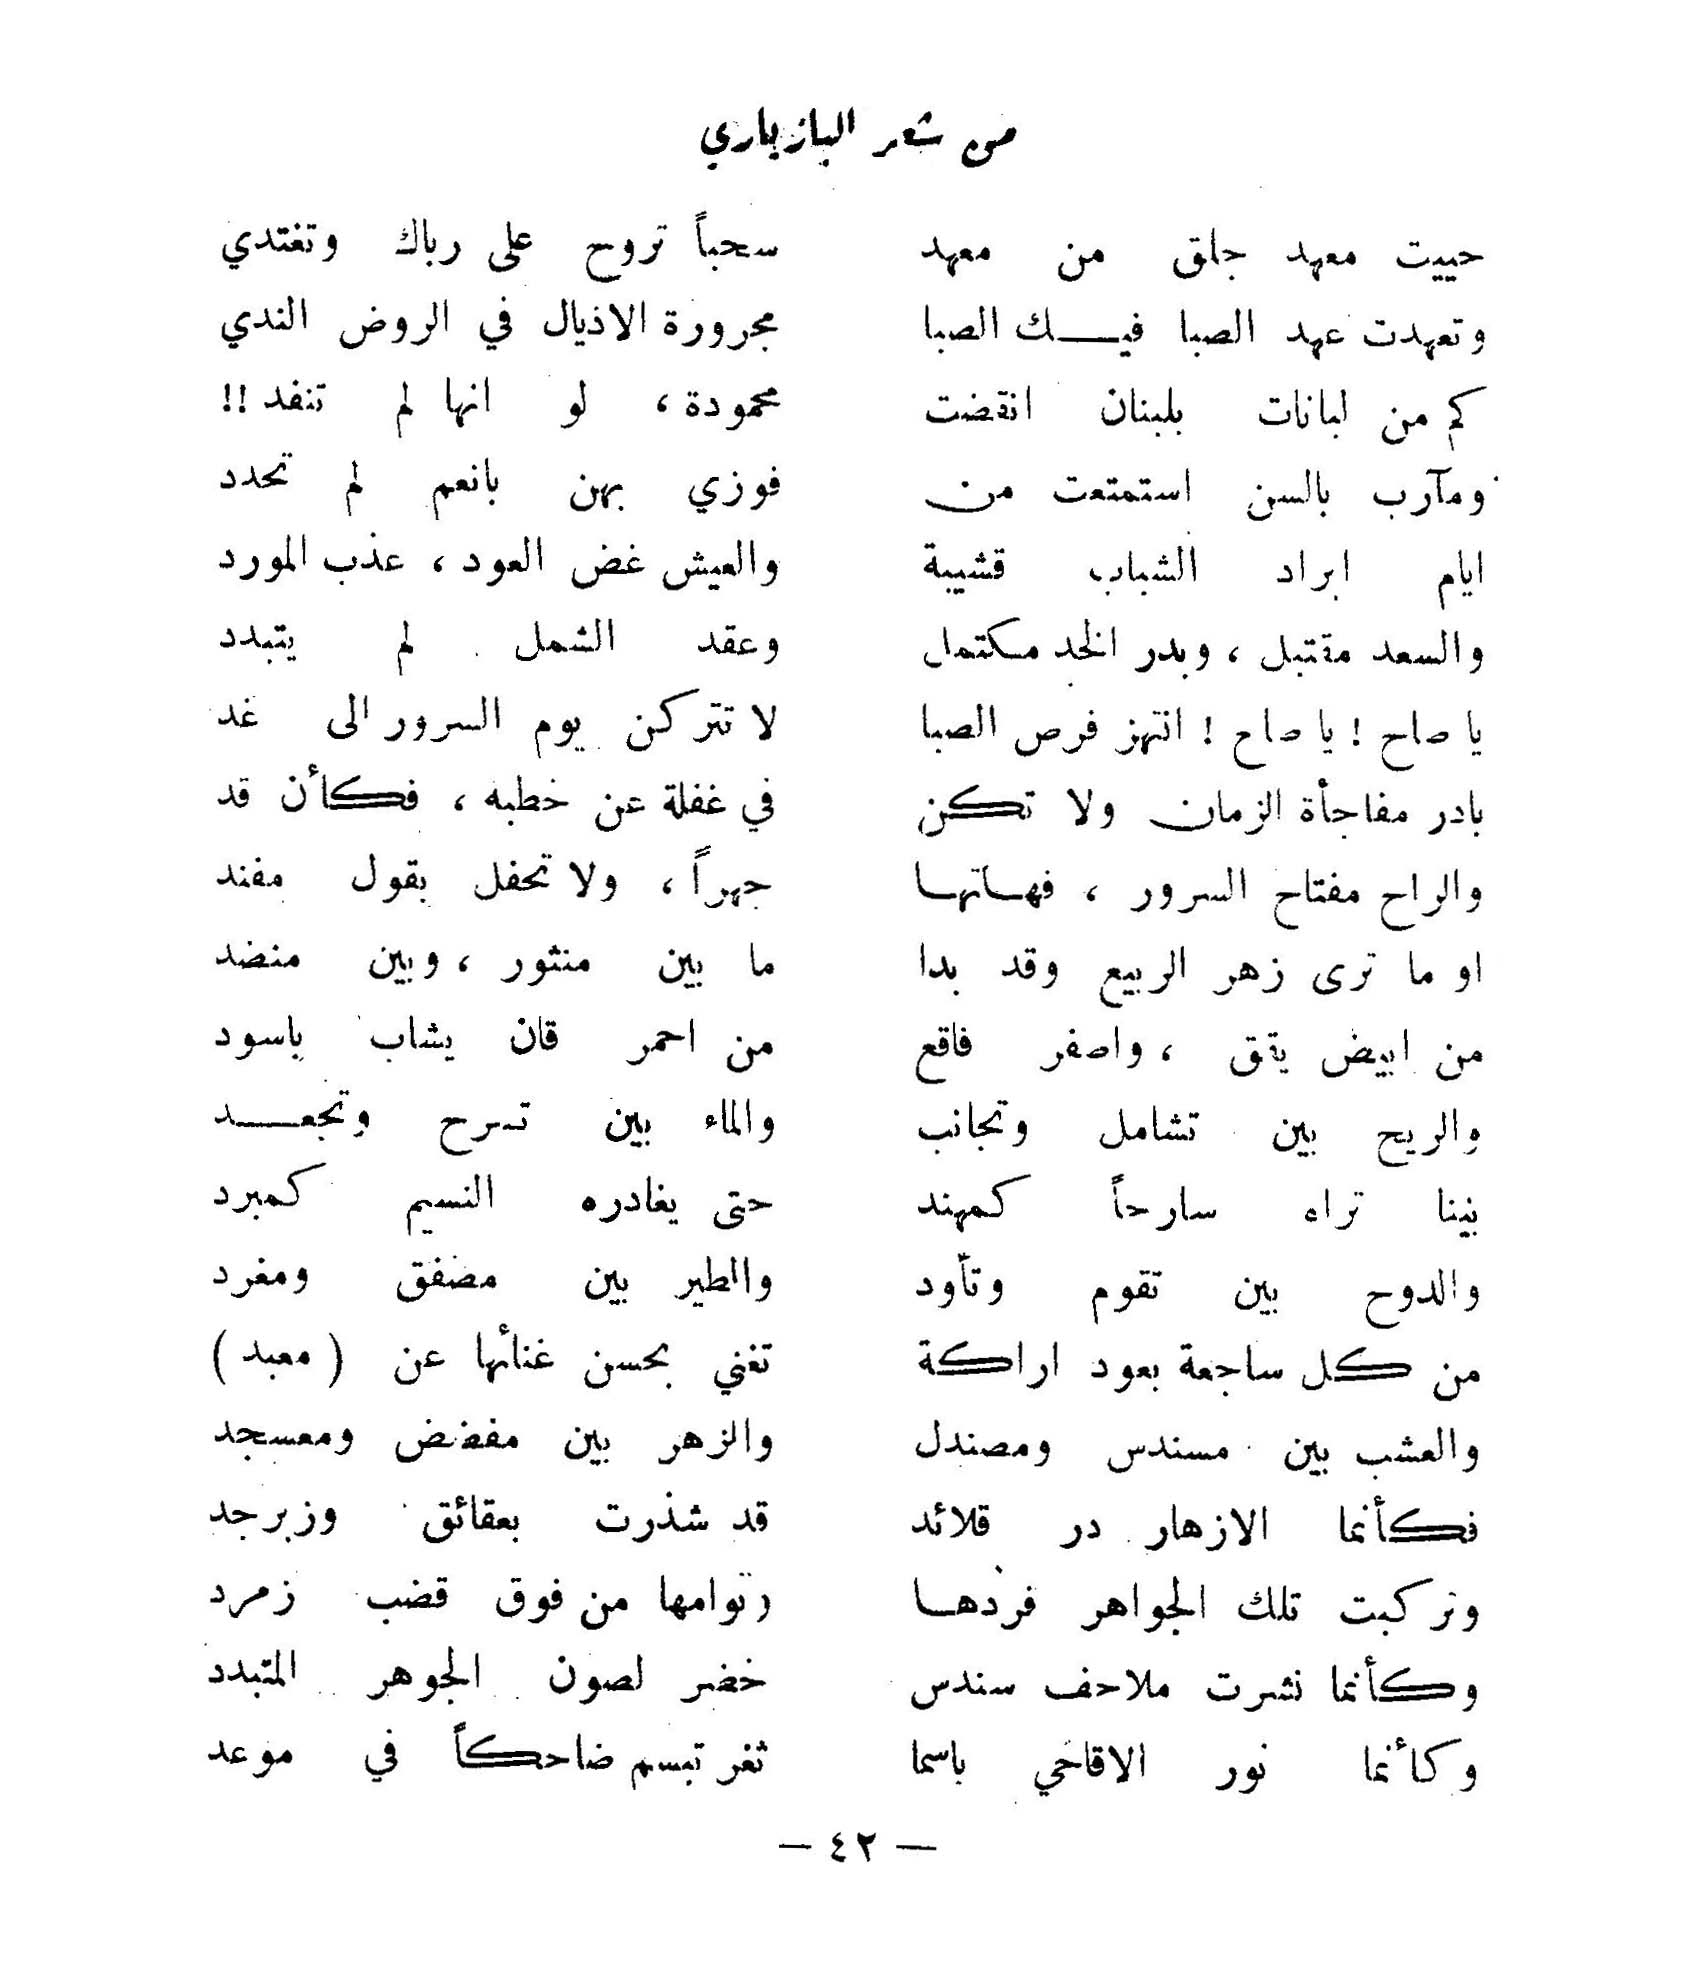 من شعر البازياري
حييت معهد جلق من معهد سحباً تروح على رباك وتغتدي
وتعهدت عهد الصبا فيــك الصبا مجرورة الاذيال في الروض الندي
كم من لبانات بلبنان انقضت محمودة ، لو انها لم تنفد !!
ومآرب بالسن استمتعت من فوزي بهن بانعم لم تحدد
ايام ابراد الشباب قشيبة والعيش غض العود ، عذب المورد
والسعد مقتبل ، وبدر الخد مكتمل وعقد الشمل لم يتبدد
يا صاح ! يا صاح ! انتهز فرص الصبا لا تتركن يوم السرور الى غد
بادر مفاجأة الزمان ولا تكن في غفلة عن خطبه ، فكأن قد
والراح مفتاح السرور ، فهاتها جهراً ، ولا تحفل بقول مفند
او ما ترى زهر الربيع وقد بدا ما بين منثور ، وبين منضد
من ابيض يقق ، واصفر فاقع من احمر قان يشاب باسود
والريح بين تشامل وتجانب والماء بين تسرح وتجعــد
بينا تراه سارحاً كمهند حتى يغادره النسيم كمبرد
والدوح بين تقوم وتأود والطير بين مصفق ومغرد
من كل ساجعة بعود اراكة تغني بحسن غنائها عن ( معبد )
والعشب بين مسندس ومصندل والزهر بين مفضض ومعسجد
فكأنما الازهار در قلائد قد شذرت بعقائق وزبرجد
وتركبت تلك الجواهر فردها وتوامها من فوق قضب زمرد
وكأنما نشرت ملاحف سندس خضر لصون الجوهر المتبدد
وكأنما نور الاقاحي باسما ثغر تبسم ضاحكاً في موعد
— ٤٢ —